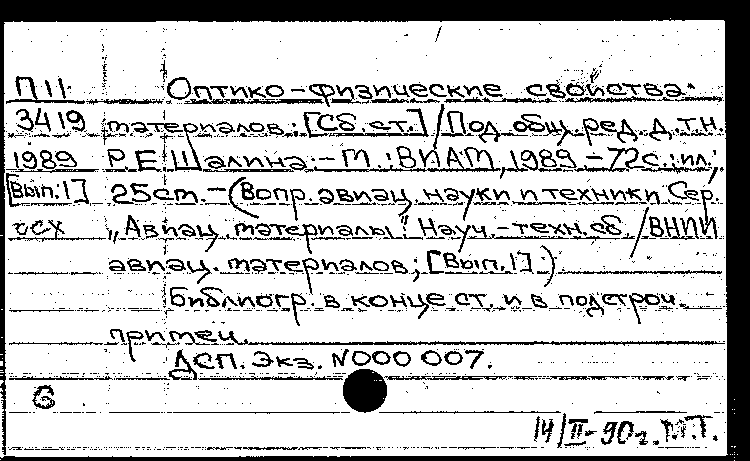 П11 Оптико-физические свойства
3419 материалов: [Сб. ст.] / Под общ. ред. д.т.н.
1989 Р.Е. Шалина. - М.: ВИАМ, 1989. - 72с.: ил.;
[Вып.1] 25см. - (Вопр. авиац. науки и техники. Сер.
"Авиац. материалы": Науч.-техн. сб. / ВНИИ
авиац. материалов; [Вып.1].)
Библиогр. в конце ст. и в подстроч.
примеч.
ДСП. Экз. N000 007.
6
14/II-90г.